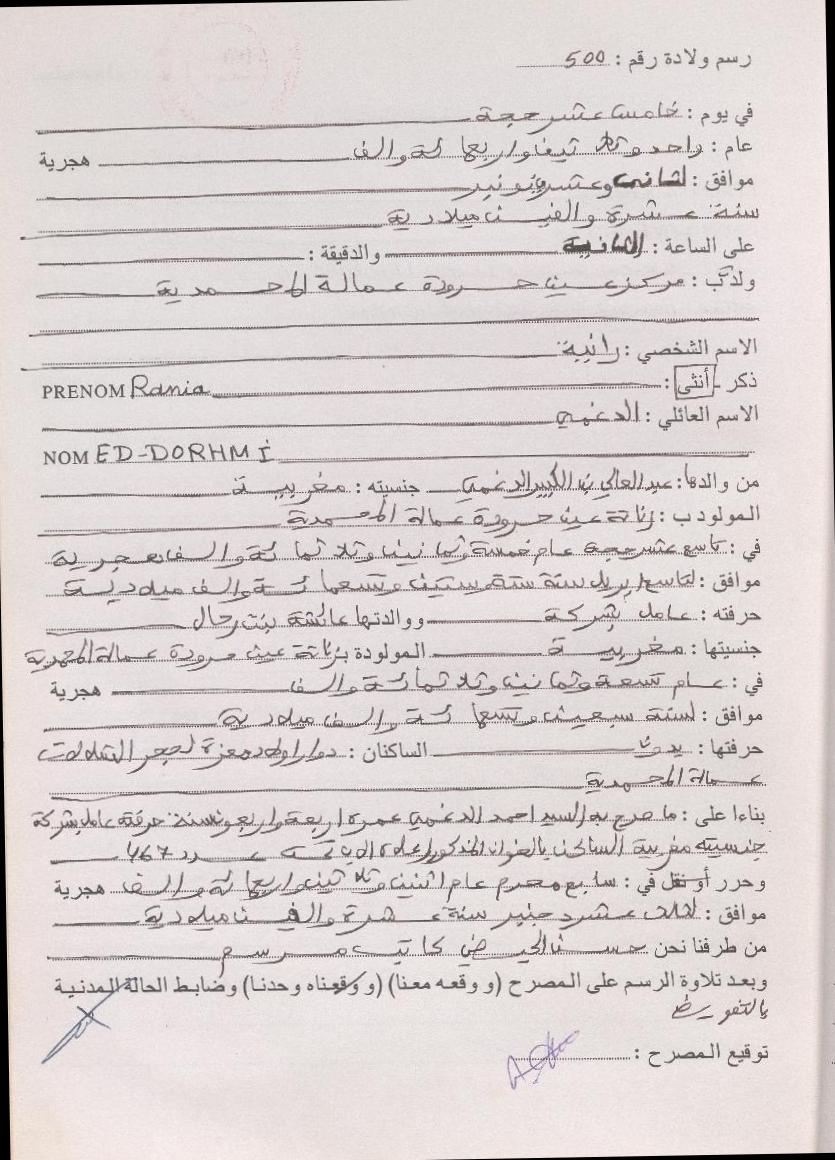 رسم ولادة رقم : 500
في يوم : خامس عشر حجة
عام : واحد وثلاثين واربعمائة والف هجرية
موافق : لثاني وعشرين نونبر
سنة عشرة والفين ميلادية
على الساعة : الثانية والدقيقة :
ولدت ب : مركز عين حرودة عمالة المحمدية
الاسم الشخصي : رانية
ذكر - أنثى :
PRENOM Rania
الاسم العائلي : الدغمي
NOM ED-DORHMI
من والدها : عبد العالي بن الكبير الدغمي جنسيته : مغربية
المولود ب : زناتة عين حرودة عمالة المحمدية
في : تاسع عشر حجة عام خمسة وثمانين وثلاثمائة والف هجرية
موافق : لتاسع ابريل سنة ستة وستين وتسعمائة والف ميلادية
حرفته : عامل بشركة ووالدتها عائشة بنت رحال
جنسيتها : مغربية المولودة بزناتة عين حرودة عمالة المحمدية
في : عام تسعة وثمانين وثلاثمائة والف هجرية
موافق : لسنة سبعين وتسعمائة والف ميلادية
حرفتها : بدون الساكنان : دوار اولاد معزة لحجر
عمالة المحمدية
بناءا على : ما صرح به السيد احمد الدغمي عمره اربعة واربعون سنة حرفته عامل بشركة
جنسيته مغربية الساكن بالعنوان المذكور اعلاه عدد 467
وحرر أو نقل في : سابع محرم عام اثنين وثلاثين واربعمائة والف هجرية
موافق : لثالث عشر دجنبر سنة عشرة والفين ميلادية
من طرفنا نحن حسن كاتب مرسم
وبعد تلاوة الرسم على المصرح (و وقعه معنا) (و وقعناه وحدنا) وضابط الحالة المدنية
بالتفويض
توقيع المصرح :